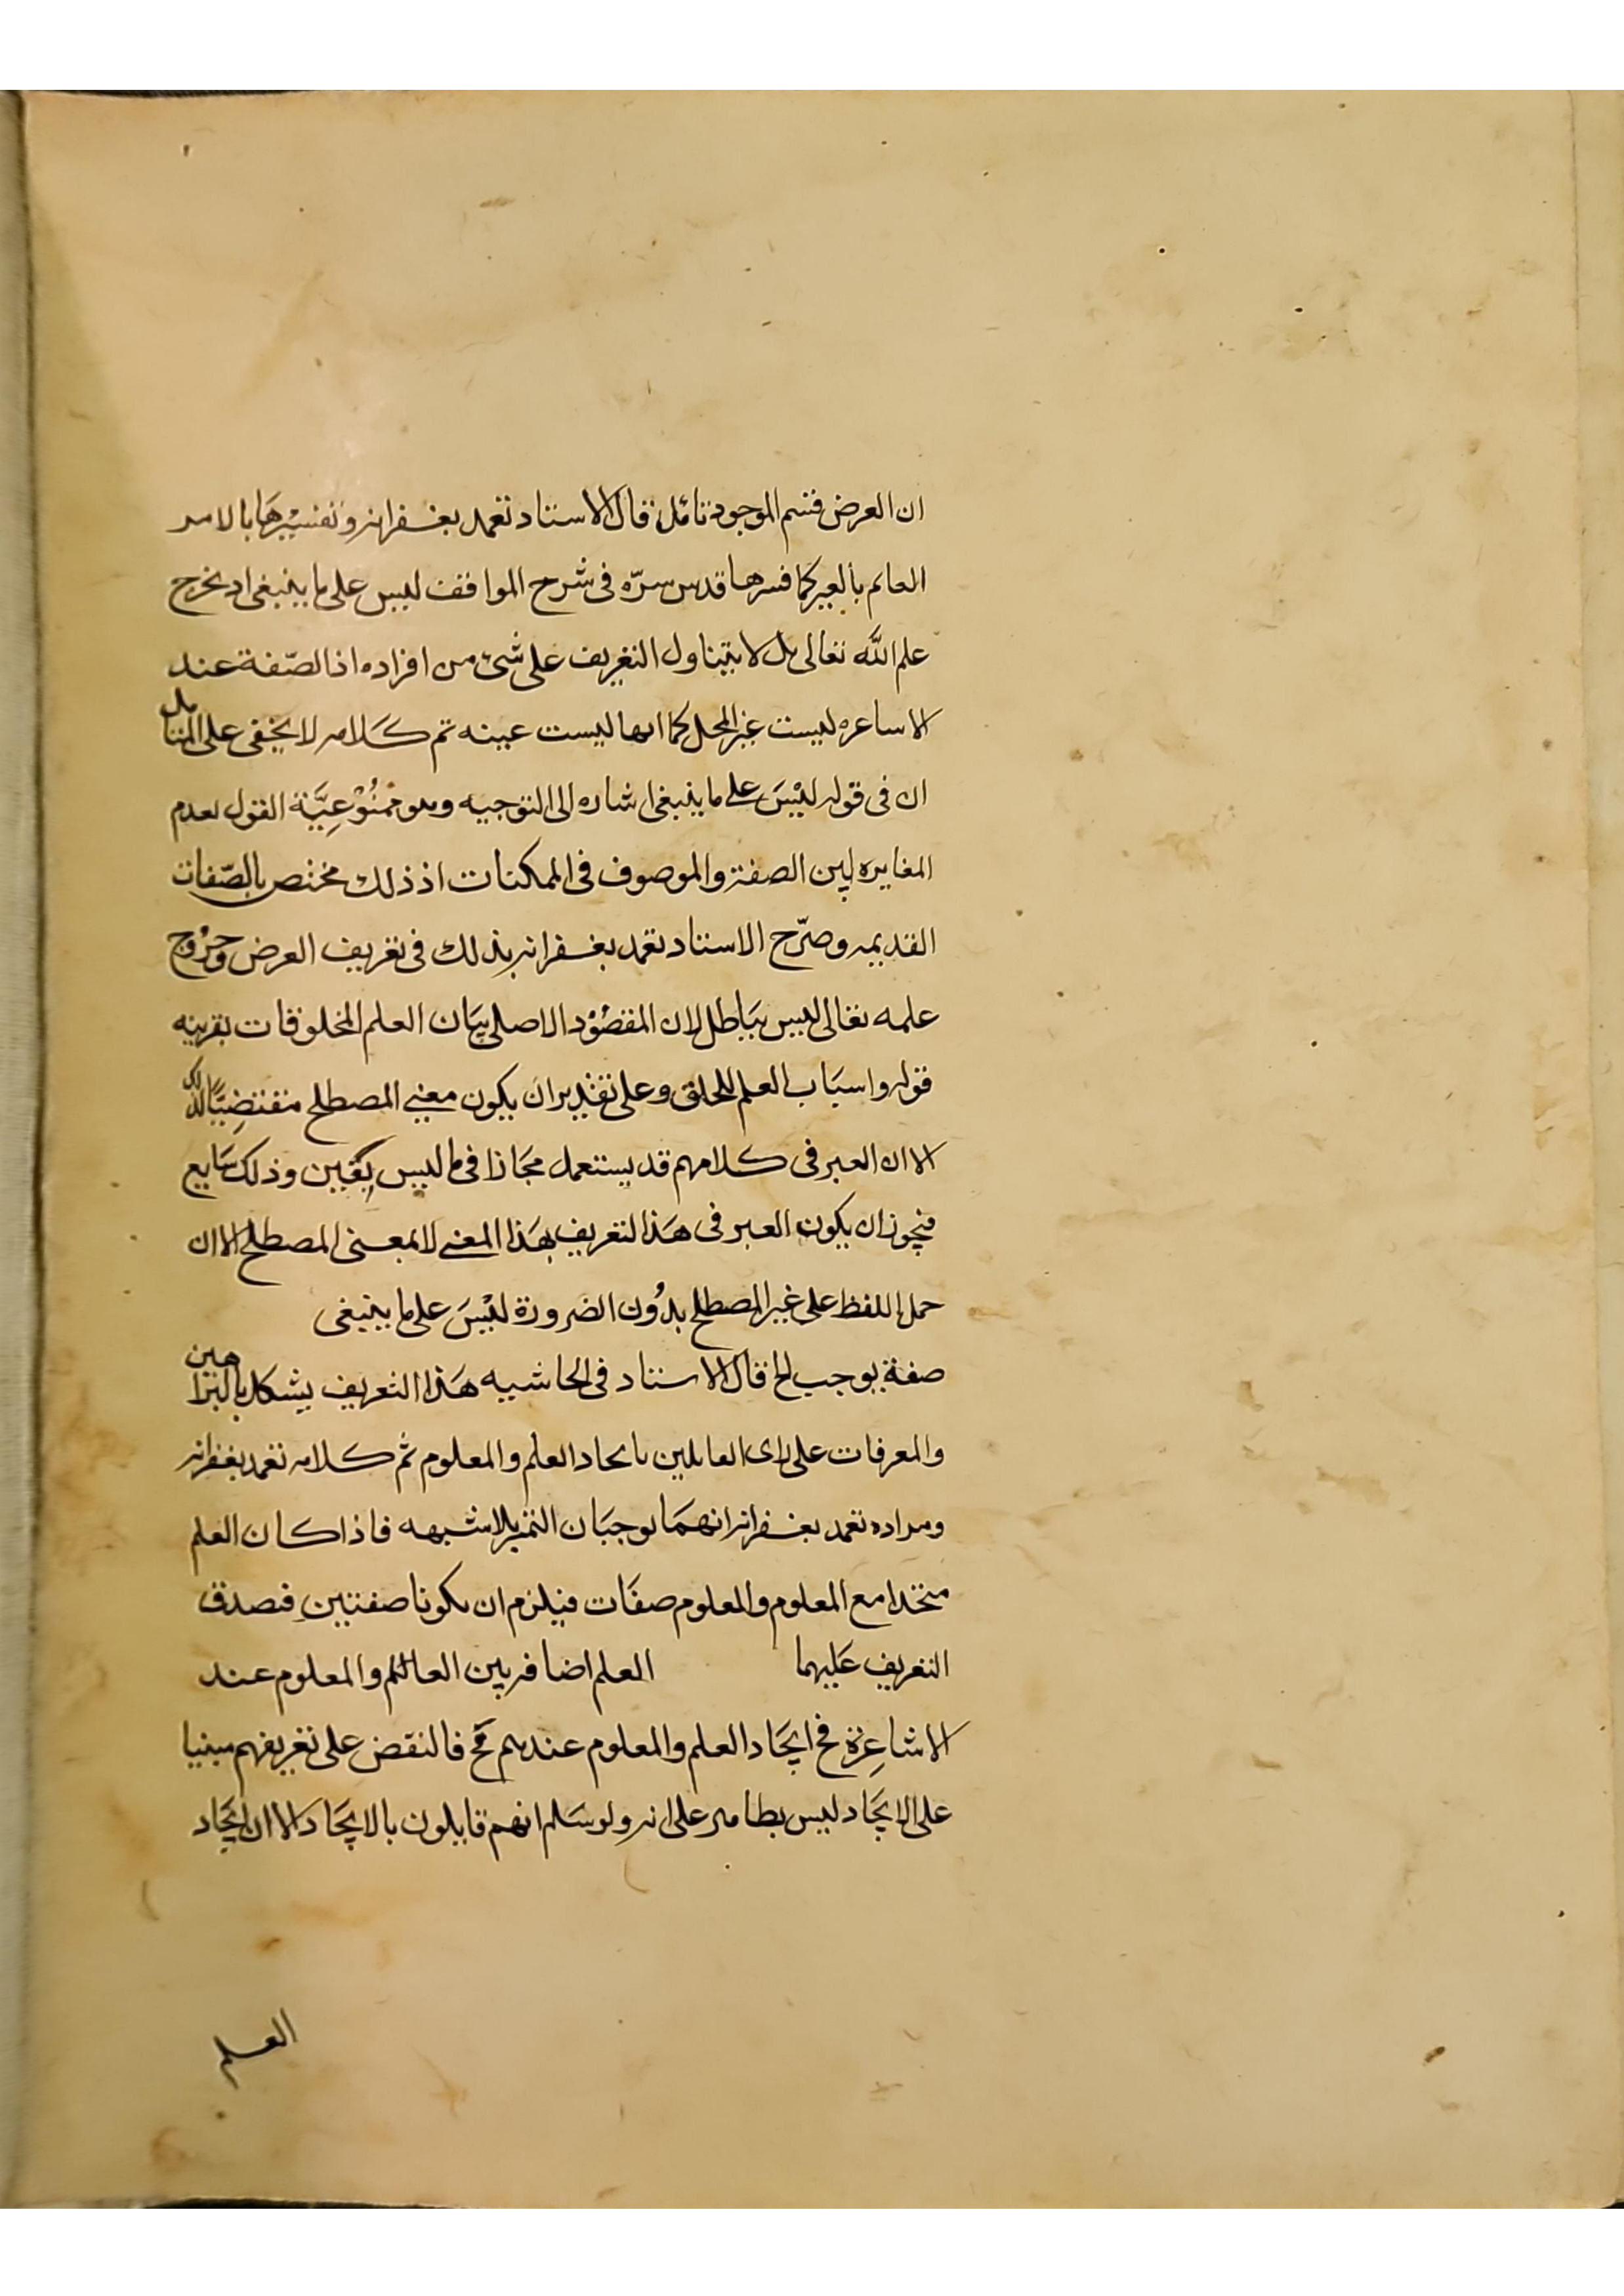 ان العرض قسم الموجود تامل قال الاستاد تغمد بغفرانه وتفسيرها بالامر
العائم بالعير كما فسرها قدس سرّه فى شرح المواقف ليس على ما ينبغى اد يخرج
علم اللّه تعالى بل لا يتناول التعريف على شئ من افراده اذ الصّفة عند
الاساعره ليست غير المحل كما انها ليست عينه تم كلامه لا يخفى على المتامل
ان فى قوله ليْسَ على ما ينبغى اشاره الى التوجيه وهو ممنُوْعِيَّة القول بعدم
المغايره بين الصفة والموصوف فى الممكنات اذ ذلك مختص بالصّفات
القديمه وصرّح الاستاد تغمد بغفرانه بذلك فى تعريف العرض وخرُوج
علمه تعالى ليس ببَاطل لان المقصُوْد الاصلى بيَان العلم المخلوقات بقرينه
قوله واسبَاب العلم للخلق وعلى تقدير ان يكون معنى المصطلح مقتضِيًا لذلك
الا ان العير فى كلامهم قد يستعمل مجَازا فى ما ليس بِعَين وذلك شايع
فيجوز ان يكون العير فى هَذا التعريف بهَذا المعنى لا بمعنى المصطلح الا ان
حمل اللفظ على غير المصطلح بدُون الضرورة ليْسَ على ما ينبغى
صفة يوجب الخ قال الاستاد فى الحاشيه هَذا التعريف يشكل بالبراهين
والمعرفات على راى العايلين باتحاد العلم والمعلوم ثم كلامه تغمد بغفرانه
ومراده تغمد بغفرانه انهمَا يوجبَان التميز بلا شبهه فاذا كان العلم
متحدا مع المعلوم والمعلوم صفَات فيلزم ان يكونا صفتين فصدق
التعريف عَليهما العلم اضافه بين العالم والمعلوم عند
الاشاعِرة فح اتحَاد العلم والمعلوم عندهم مح فالنقض على تعريفهم مبنيا
على الاتحَاد ليس بظاهر على انه ولو سَلم انهم قايلون بالاتحَاد الا ان اتحَاد
العلم